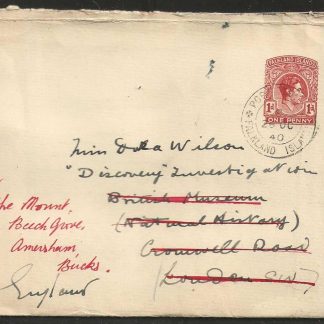 FALKLAND ISLANDS
1d 1d
ONE PENNY
FALKLAND ISLAN
OC
40
Miss Dola Wilson
"Discovery" Investigation
British Museum
(Natural History)
Cromwell Road
(London SW7)
The Mount,
Beech Grove,
Amersham,
Bucks.
England